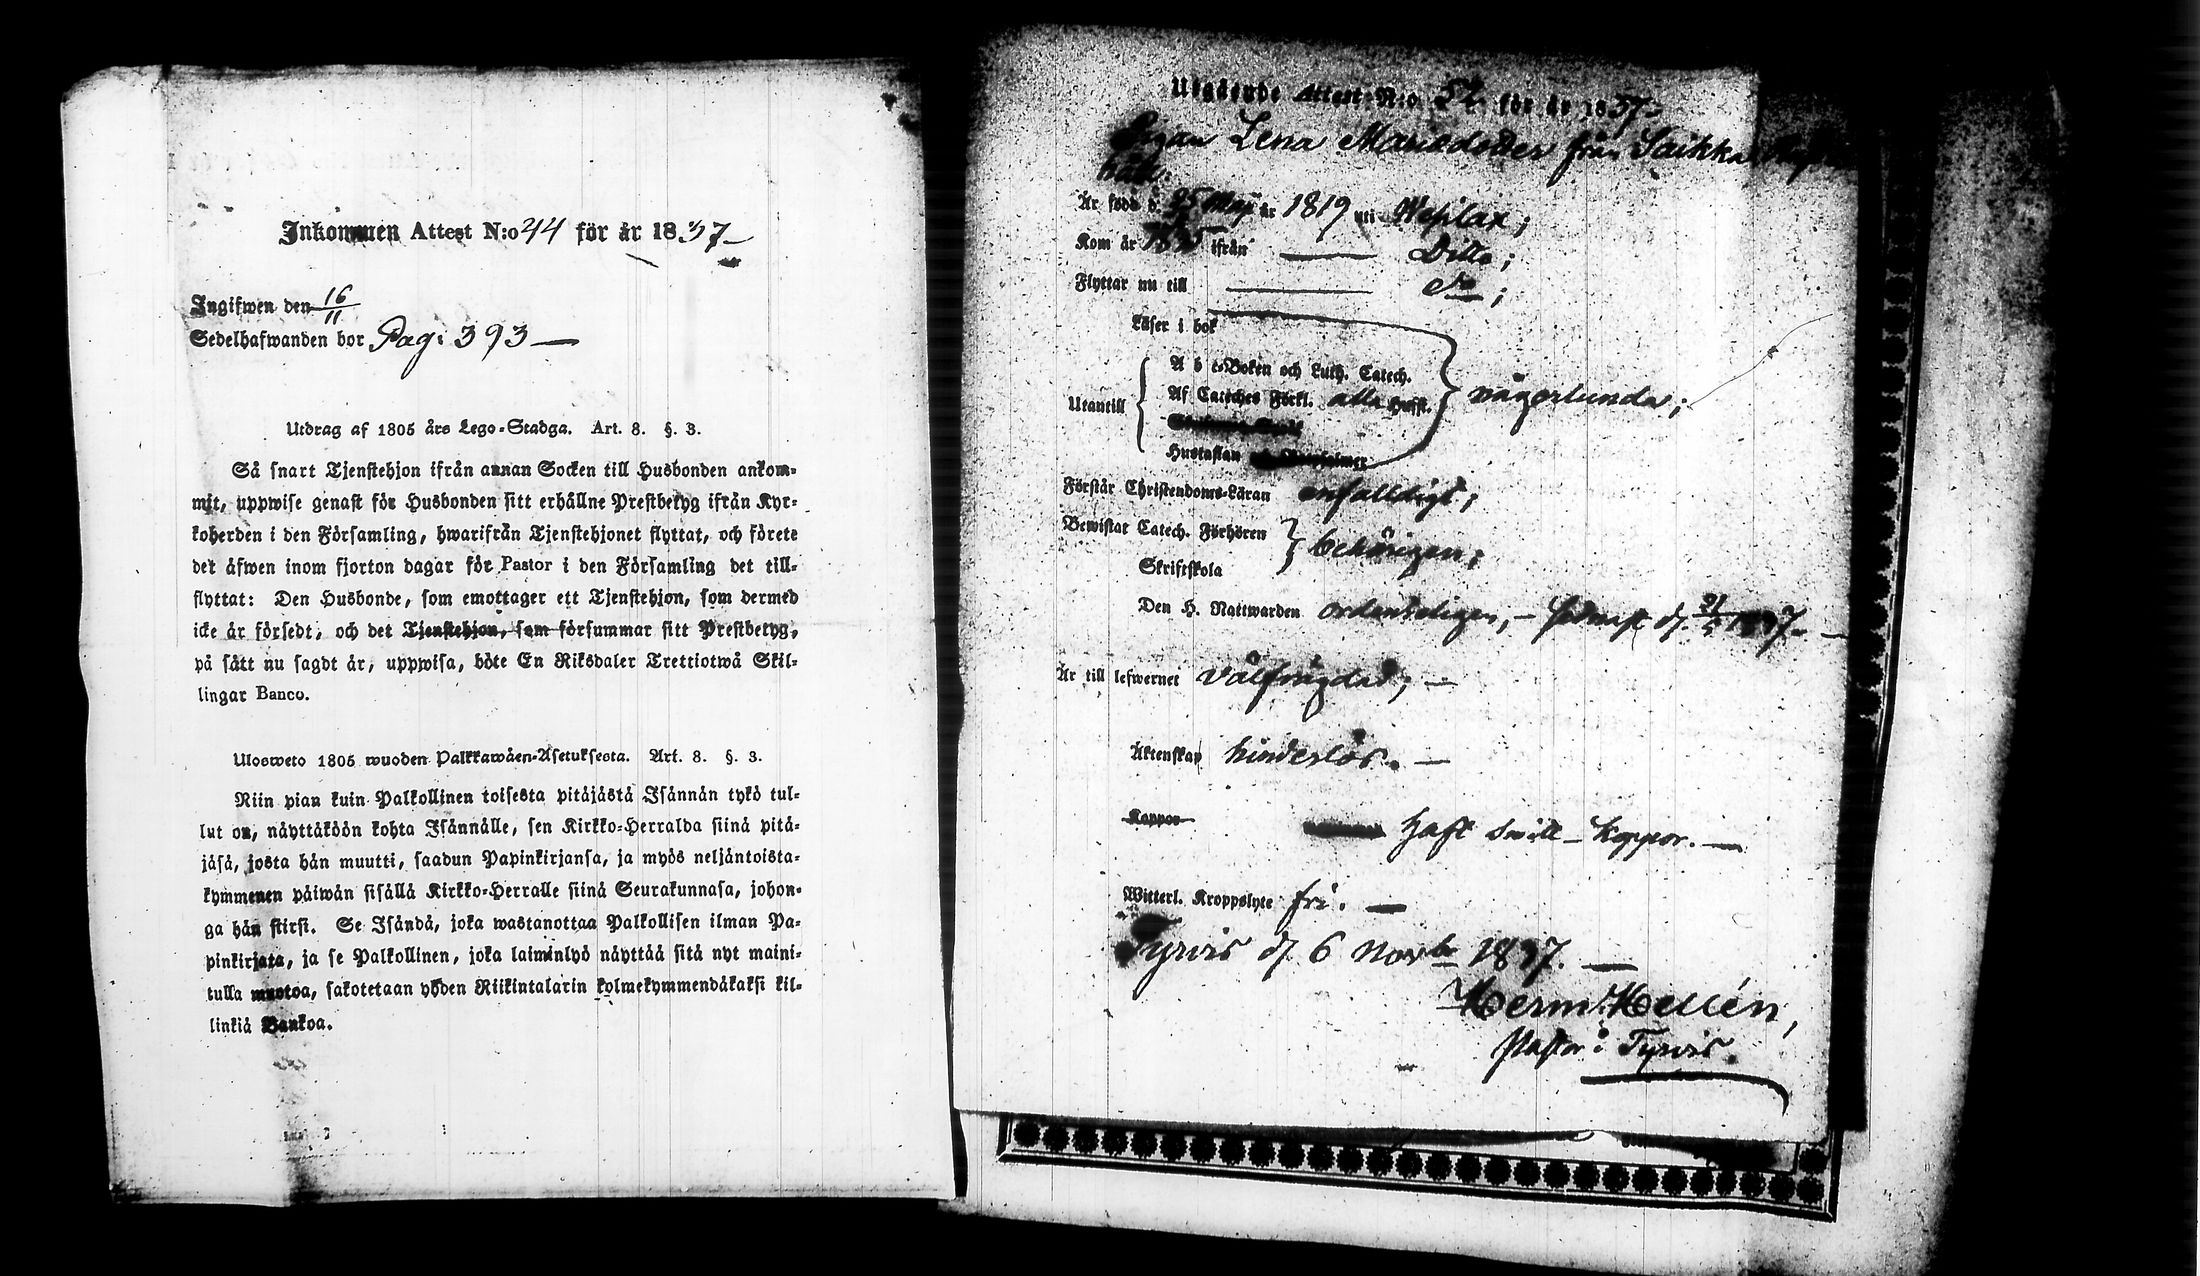 Inkommen Attest N:o 44 för år 1837
Ingifwen den 16/11
Sedelhafwanden bor Pag: 393
Utdrag af 1805 års Lego-Stadga. Art. 8. §. 3.
Så snart Tjenstehjon ifrån annan Socken till Husbonden ankom-
mit, uppwise genast för Husbonden sitt erhållne Prestbetyg ifrån Kyr-
koherden i den Församling, hwarifrån Tjenstehjonet flyttat, och förete
det åfwen inom fjorton dagar för Pastor i den Församling det till-
flyttat: Den Husbonde, som emottager ett Tjenstehjon, som dermed
icke är försedt, och det Tjenstehjon, som försummar sitt Prestbetyg,
på sått nu sagdt är, uppwisa, böte En Riksdaler Trettiotwå Skil-
lingar Banco.
Ulosweto 1805 wuoden Palkkawåen-Asetuksesta. Art. 8. §. 3.
Niin pian kuin Palkollinen toisesta pitåjåstå Isånnån tykö tul-
lut on, nåyttåköön kohta Isånnålle, sen Kirkko-Herralda siinå pitå-
jåså, josta hån muutti, saadun Papinkirjansa, ja myös neljåntoista-
kymmenen påiwån sisållå Kirkko-Herralle siinå Seurakunnasa, johon-
ga hån siirsi. Se Isåndå, joka wastanottaa Palkollisen ilman Pa-
pinkirjata, ja se Palkollinen, joka laiminlyö nåyttåå sitå nyt maini-
tulla muotoa, sakotetaan yhden Riikintalarin kolmekymmendåkaksi kil-
linkiå Bankoa.
Utgående Attest N:o 52 för år 1837
Pigan Lena Mariedotter från Saikka
Är född d. 25 Maj år 1819 uti Wesilax;
Kom år 1835 ifrån Ditto;
Flyttar nu till Do;
Läser i bok
A b c-Boken och Luth. Catech.
Utantill Af Cateches Förkl. alla Hufst. någorlunda;
Hustaflan
Förstår Christendoms-Läran enfalldigt;
Bewistat Catech. Förhören behörigen;
Skriftskola
Den H. Nattwarden ordenteligen, – sednast d. 21/5 1837.
Är till lefwernet välfrägdad;
Äktenskap hinderlös.
Koppor Haft små-koppor.
Witterl. Kroppslyte fri.
Tyrvis d. 6 Novbr 1837.
Herm. Hellén,
Pastor i Tyrvis.